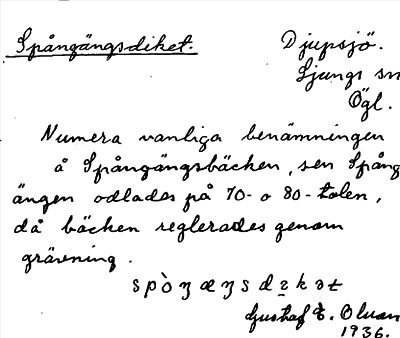 Spångängsdiket.
Djupsjö.
Ljungs sn
Ögl.
Numera vanliga benämningen
å Spångängsbäcken, sen Spång
ängen odlades på 70- o 80-talen,
då bäcken reglerades genom
grävning.
Gustaf E. Oluan
1936.